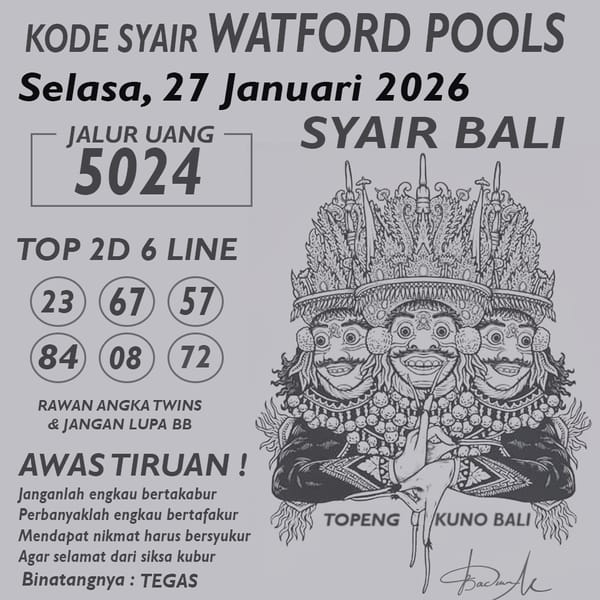 KODE SYAIR WATFORD POOLS
Selasa, 27 Januari 2026
JALUR UANG
5024
SYAIR BALI
TOP 2D 6 LINE
23 67 57
84 08 72
RAWAN ANGKA TWINS
& JANGAN LUPA BB
AWAS TIRUAN !
Janganlah engkau bertakabur
Perbanyaklah engkau bertafakur
Mendapat nikmat harus bersyukur
Agar selamat dari siksa kubur
Binatangnya : TEGAS
TOPENG KUNO BALI